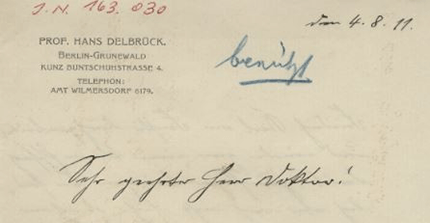 J. N. 163.030
den 4. 8. 11.
PROF. HANS DELBRÜCK.
BERLIN-GRUNEWALD
KUNZ BUNTSCHUHSTRASSE 4.
TELEPHON:
AMT WILMERSDORF 6179.
benützt
Sehr geehrter Herr Doktor!